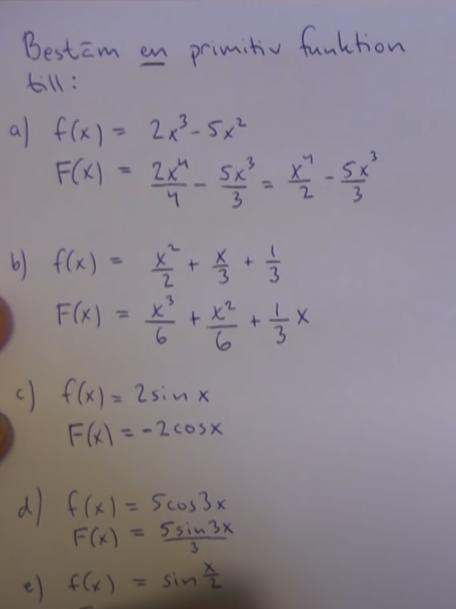 Bestäm en primitiv funktion
till:
a) f(x) = 2x³ - 5x²
F(x) = 2x⁴/4 - 5x³/3 = x⁴/2 - 5x³/3
b) f(x) = x²/2 + x/3 + 1/3
F(x) = x³/6 + x²/6 + 1/3 x
c) f(x) = 2 sin x
F(x) = -2cosx
d) f(x) = 5cos3x
F(x) = 5sin3x/3
e) f(x) = sin x/2